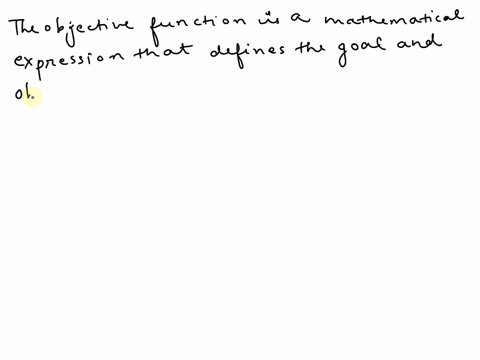 The objective function is a mathematical
expression that defines the goal and
ob